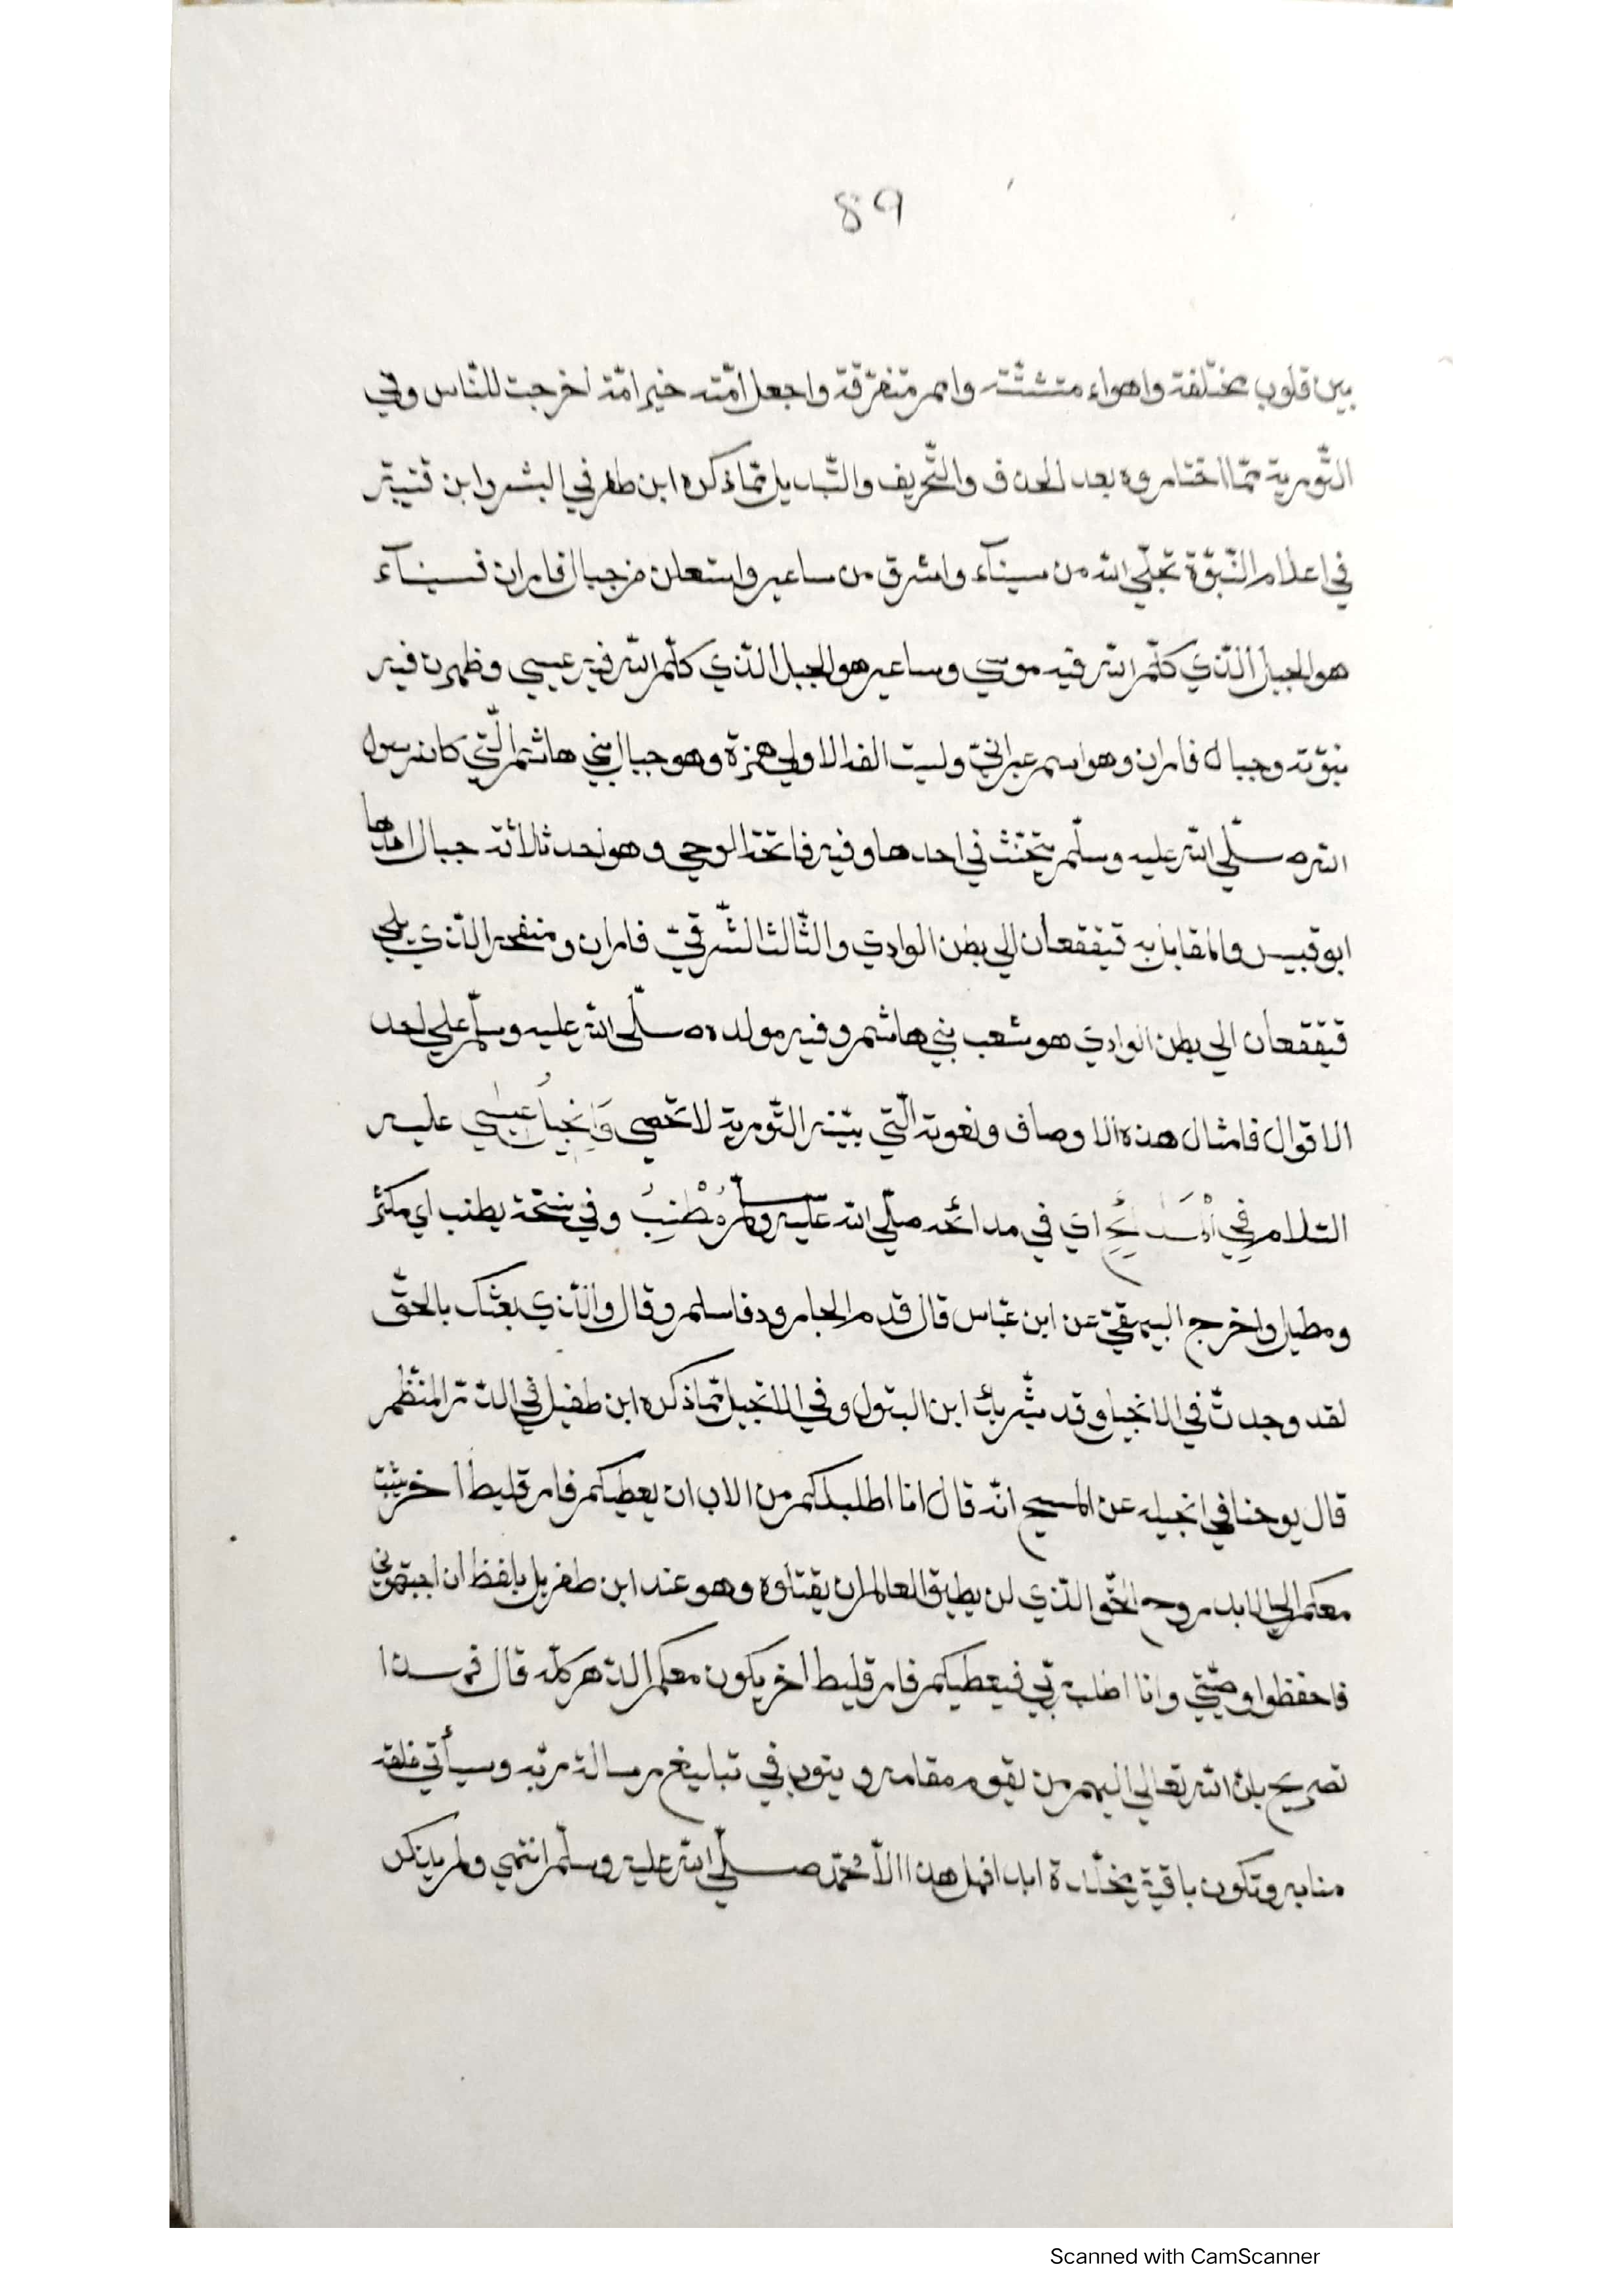 89
بين قلوب مختلفة واهواء متشتّتة وامم متفرّقة واجعل امّته خير امّة اخرجت للنّاس وفي
التّورية ممّا اختاروه بعد الحذف والتّحريف والتّبديل ممّا ذكره ابن ظفر في البشر وابن قتيبة
في اعلام النّبوّة تجلّي الله من سيناء واشرق من ساعير واستعلن من جبال فاران فسيناء
هو الجبل الّذي كلّم الله فيه موسي وساعير هو الجبل الّذي كلّم الله فيه عيسي وظهرت فيه
نبوّته وجبال فاران وهو اسم عبرانيّ وليست الفه الاولي همزة وهو جبال بني هاشم الّتي كان رسول
الله صلّي الله عليه وسلّم يتحنّث في احدها وفيه فاتحة الوحي وهو احد ثلاثة جبال احدها
ابو قبيس والمقابل به قيقعان الي بطن الوادي والثّالث الشّرقيّ فاران ومنفحه الّذي يلي
قيقعان الي بطن الوادي هو شعب بني هاشم وفيه مولده صلّي الله عليه وسلّم علي احد
الاقوال فامثال هذه الاوصاف ونعوته الّتي بيّنه التّورية لا تحصي وَاِنْجِيلُ عيسي عليه
السّلام فِي الْمَدَائِحِ اي في مدائحه صلّي الله عليه وسلّم مُطْنِبُ وفي نسخة يطنب اي مكثر
ومطيل واخرج البيهقيّ عن ابن عبّاس قال قدم الجارود فاسلم وقال والّذي بعثك بالحقّ
لقد وجدتّ في الانجيل وقد بشّر بك ابن البتول وفي الانجيل ممّا ذكره ابن طفيل في الدّرّ المنظّم
قال يوحنا في انجيله عن المسيح انّه قال انا اطلب لكم من الاب ان يعطيكم فارقليط اخر يثبت
معكم الي الابد روح الحقّ الّذي لن يطيق العالم ان يقتلوه وهو عند ابن طغربل بلفظ ان اجبتموني
فاحفظوا وصيّتي وانا اطلب ربّي فيعطيكم فارقليط اخر يكون معكم الدّهر كلّه قال فهذا
تصريح بان الله تعالي اليهم من يقوم مقامه و ينوب في تبليغ رسالة ربّه وسيأتي خلقه
منابه وتكون باقية مخلّدة ابدا فهل هذا الّا محمّد صلّي الله عليه وسلّم انتهي ولم يذكر
Scanned with CamScanner